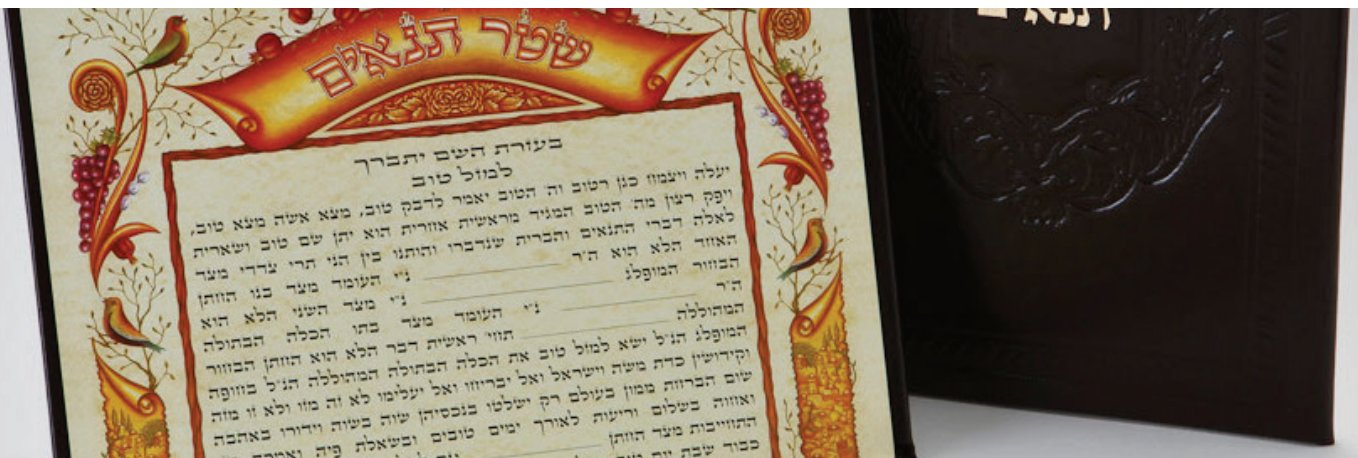 שטר תנאים
תנאים
בעזרת השם יתברך
למזל טוב
יעלה ויצמח כגן רטוב וה׳ הטוב יאמר לדבק טוב, מצא אשה מצא טוב,
ויפק רצון מה׳ הטוב המגיד מראשית אחרית הוא יתן שם טוב ושארית
לאלה דברי התנאים והברית שנדברו והותנו בין הני תרי צדדי מצד
האחד הלא הוא ה״ר נ״י העומד מצד בנו החתן
הבחור המופלג נ״י מצד השני הלא הוא
ה״ר נ״י העומד מצד בתו הכלה הבתולה
המהוללה תחי׳ ראשית דבר הלא הוא החתן הבחור
המופלג הנ״ל ישא למזל טוב את הכלה הבתולה המהוללה הנ״ל בחופה
וקידושין כדת משה וישראל ואל יבריחו ואל יעלימו לא זה מזו ולא זו מזה
שום הברחת ממון בעולם רק ישלטו בנכסיהן שוה בשוה וידורו באהבה
ואחוה בשלום וריעות לאורך ימים טובים ובשאלת פיה
התחייבות מצד החתן
כבוד שבת יום